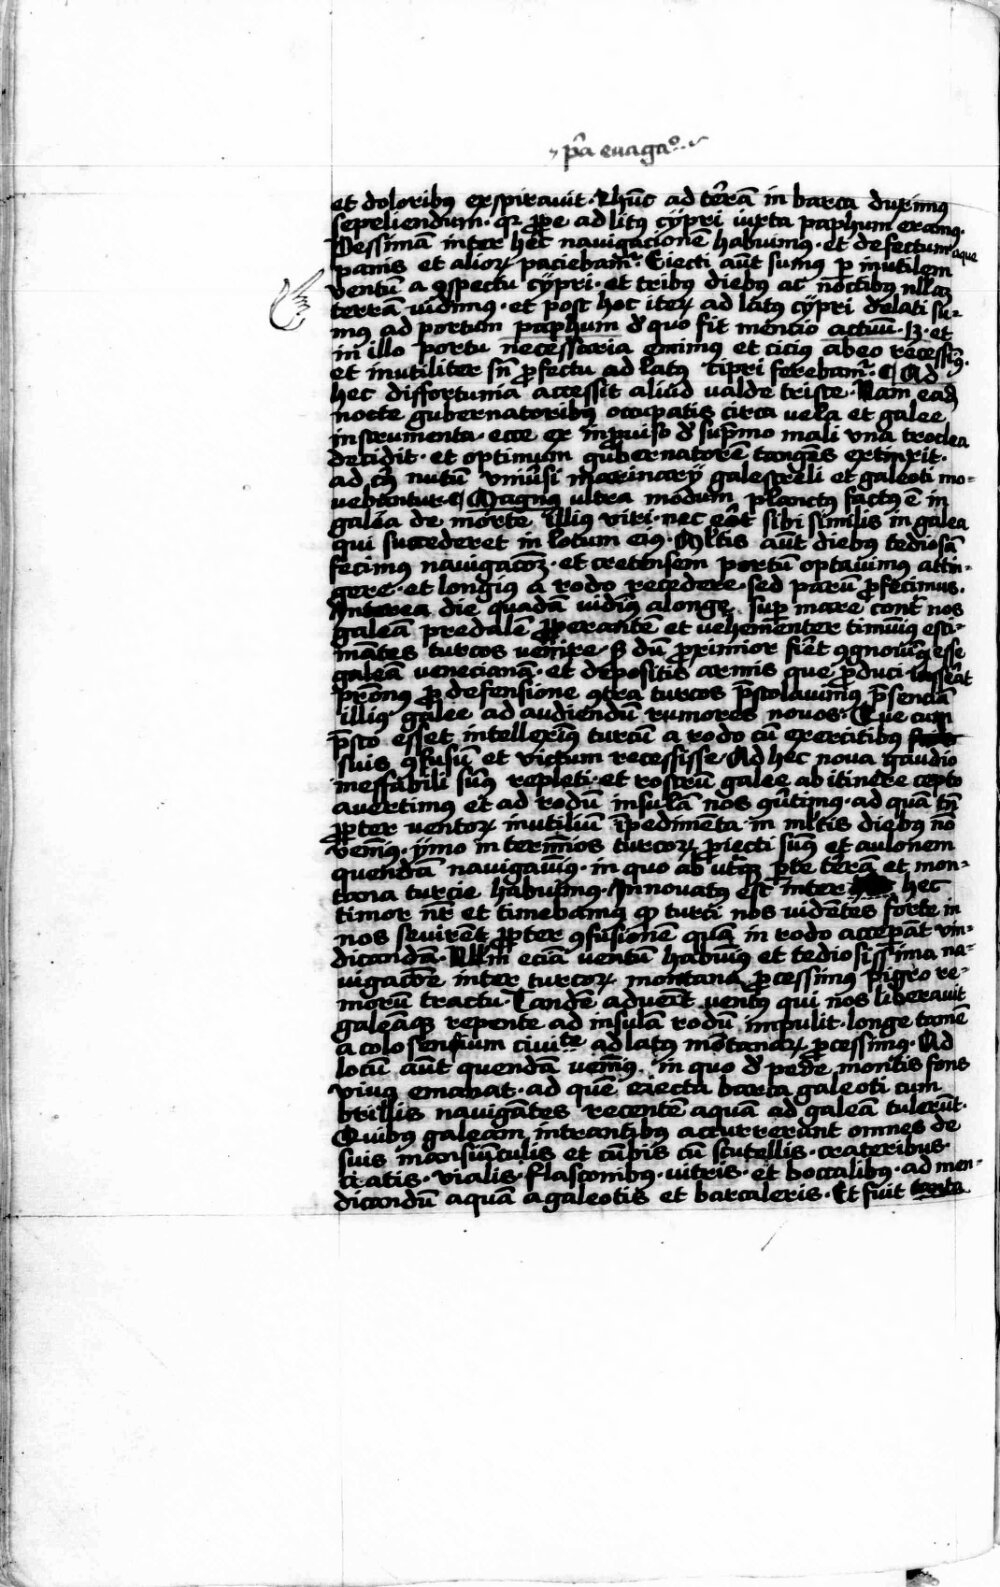 p̄a evagaº
et doloribꝰ expiravit · Nūc ad terrā in barca duximꝰ
sepeliendum · qꝛ ꝓpe ad litꝰ cÿpri iuxta paphum eramꝰ ·
Pessimā inter hec navigacionē habuimꝰ · et defectum aque
panis et alioꝝ paciebamᷣ · Eiecti aūt sumꝰ ꝑ inutilem
ventū a ꝯspectu cÿpri · et tribus diebꝰ ac noctibus nllaꝫ
terrā vidimꝰ · et post hoc iteꝝ ad latꝰ cÿpri delati su-
mꝰ ad portum paphum de quo fit mentio actuū · 13 · et
in illo portu necessaria emimꝰ et cicius ab eo recessimꝰ ·
et inutiliter sn̄ ꝓfectu ad latꝰ cipri ferebamᷣ · ¶ Ad
hec diffortunia accessit aliud valde triste · Nam eadē
nocte gubernatoribꝰ occupatis circa vela et galee
instrumenta · ecce ex inꝓuiso de supremo mali vna troclea
decidit · et optimum gubernatorē tangēs extinxit ·
ad cꝰ nutū vniūsi marinarÿ galescreli et galeoti mo-
vebantur ¶ Magnꝰ ultra modum planctꝰ factꝰ ē in
galea de morte illius viri · nec erat sibi similis in galea
qui succederet in locum eiꝰ · Mltis aūt diebus tediosā
fecimus navigacōꝫ · et cretensem portū optavimus attin-
gere · et longius a rodo recedere · sed parū ꝓfecimus ·
Interea die quadā vidimꝰ alonge sup mare contͣ nos
galeā predalē ꝓperantē et vehementer timuimꝰ esti-
mātes turcos venire · Sꝫ dū ꝓximior fieret ꝯgnovimꝰ esse
galeā venecianā · et depositis armis que ꝓduci iusserat
pr̄onus ꝓ defensione ꝯtra turcos p̄stolavimus p̄senciā
illiꝰ galee ad audiendū rumores novos · Que cum
p̄sto esset intelleximꝰ turcū a rodo cū exercitibus
suis ꝯfusū et victum recessisse · Ad hec nova gaudio
ineffabili sumꝰ repleti · et rostrū galee ab itinere cepto
avertimus et ad rodū insulā nos ꝯūtimꝰ · ad quā tn̄
ꝓpter ventoꝝ inutiliū īpedimēta in mltis diebus nō
venimꝰ · ÿmo in terminos turcoꝝ ꝓiecti sumꝰ et aulonem
quendā navigavimꝰ · in quo ab utraqꝫ parte terā et mon-
tana turcie habuimꝰ · Innovatꝰ est inter hec
timor nr̄ et timebamꝰ qꝫ turci nos vidētes forte in
nos sevirēt ꝓpter ꝯfusionē quā in rodo acceperāt vin-
dicandā · Nllm̄ eciā ventū habuimꝰ et tediosissima na-
vigacōe inter turcoꝝ montana ꝓcessimus pigro re-
morū tractu · Tandē advenit ventꝰ qui nos liberavit
galeāqꝫ repente ad insulā rodū impulit · longe tamē
a colosensium civitate ad latꝰ mōtanaꝝ ꝓcessimꝰ · Ad
locū aūt quendā venimꝰ · in quo de pede montis fons
vivꝰ emanat · ad quē eiecta barca galeoti cum
brillis navigātes recentē aquā ad galeā tulerūt ·
Quibꝰ galeam intrantibus accurrerunt omnes de
suis mansiūculis et cūbis cū scutellis · crateribus ·
cratis · vialis · flasconibus · vitris · et boccalibꝰ · ad men-
dicandū aquā a galeotis et barcaleris · Et fuit tanta